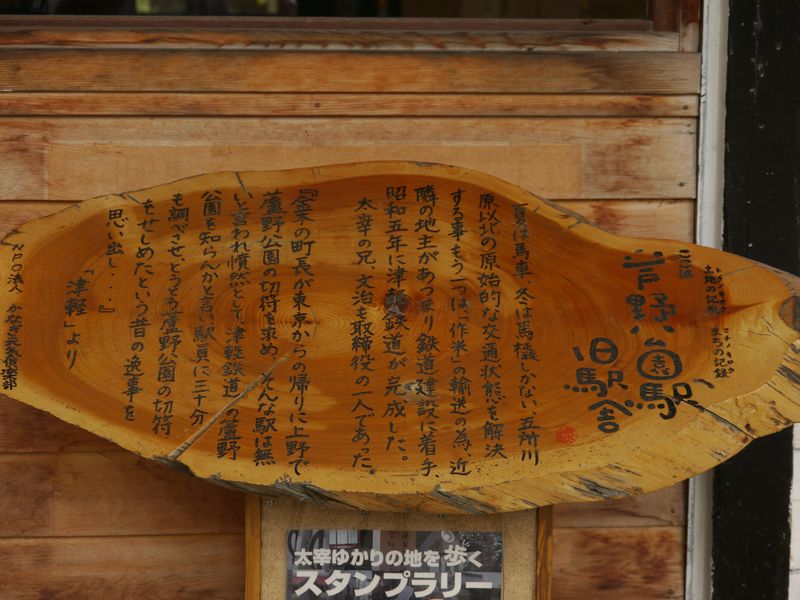 ここは
土地の記憶 まちの記録
トチノキオク マチノキロク
芦野公園駅
旧駅舎
夏は馬車、冬は馬橇しかない、五所川
原以北の原始的な交通状態を解決
する事、もう一つは、「作米」の輸送の為、近
隣の地主があつまり鉄道建設に着手、
昭和五年に津軽鉄道が完成した。
太宰の兄、文治も取締役の一人であった。
『金木の町長が東京からの帰りに上野で
蘆野公園の切符を求め、そんな駅は無
いと言われ憤然として、津軽鉄道の蘆野
公園を知らんかと言い、駅員に三十分
も調べさせ、とうとう蘆野公園の切符
をせしめたという昔の逸事を
思い出し・・・』
「津軽」より
NPO法人 かなぎ元気倶楽部
太宰ゆかりの地を歩く
スタンプラリー